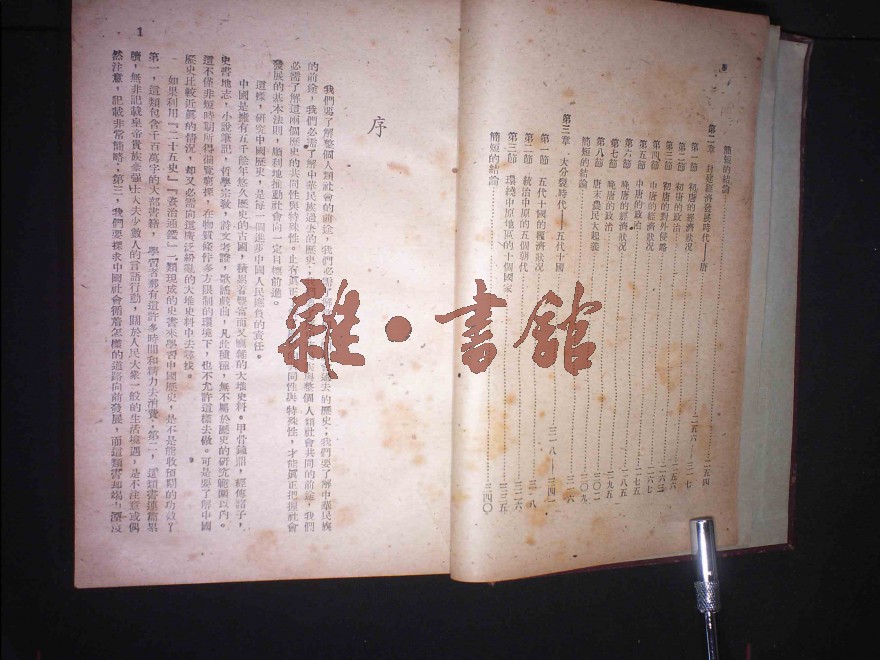 簡短的結論 二五四
第二章 封建經濟發展時代——唐 二五六
第一節 初唐的經濟狀況
第二節 初唐的政治
第三節 初唐的對外侵略
第四節 中唐的經濟狀況
第五節 中唐的政治
第六節 晚唐的經濟狀況
第七節 晚唐的政治
第八節 唐末農民大起義
簡短的結論
第三章 大分裂時代——五代十國
第一節 五代十國的經濟狀況
第二節 統治中原的五個朝代
第三節 環繞中原地區的十個國家
簡短的結論
序
我們要了解整個人類社會的前途，我們必需了解 過去的歷史；我們要了解中華民族
的前途，我們必需了解中華民族過去的歷史； 與整個人類社會共同的前途，我們
必需了解這兩個歷史的共同性與特殊性。只有真正 同性與特殊性，才能真正把握社會
發展的基本法則，順利地推動社會向一定目標前進。
這樣，研究中國歷史，是每一個進步中國人民應負的責任。
中國是擁有五千餘年悠久歷史的古國，積累著豐富而又廣泛的大堆史料。甲骨鐘鼎，經傳諸子，
史書地志，小說筆記，哲學宗教，詩文考證，歌謠戲曲，凡此種種，無不屬於歷史的研究範圍以內。
這不僅非短時期所得個覽窮探，在物質條件多方限制的環境下，也不允許這樣去做。可是要了解中國
歷史比較近真的情況，却又必需向這廣泛紛亂的大堆史料中去尋找。
如果利用『二十五史』『資治通鑑』一類現成的史書來學習中國歷史，是不是能收預期的功效？
第一，這類包含千百萬字的大部書籍，學習者那有這許多時間和精力去消費；第二，這類書連篇累
牘，無非記載皇帝貴族豪强士大夫少數人的言語行動，關於人民大衆一般的生活境遇，是不注意或偶
然注意，記載非常簡略；第三，我們要探求中國社會循着怎樣的道路向前發展，而這類書却竭力
1
雜·書館